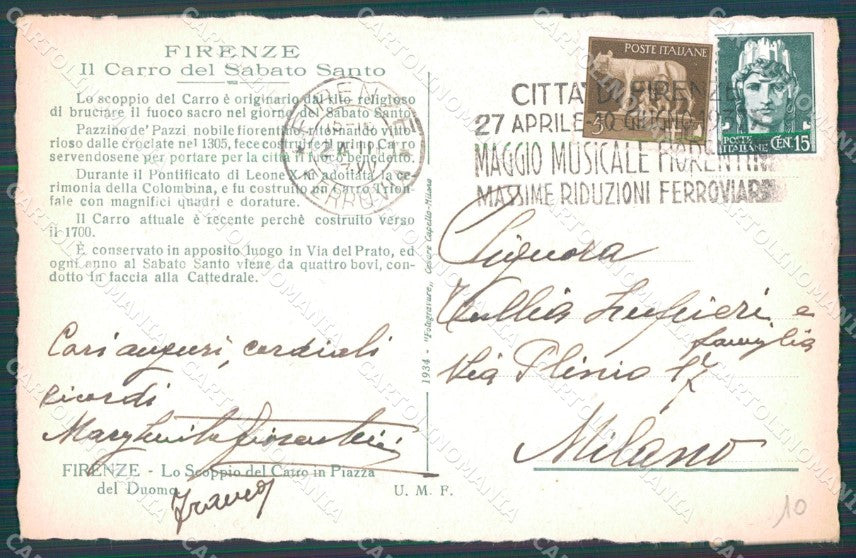 FIRENZE
Il Carro del Sabato Santo
Lo scoppio del Carro è originario dal rito religioso
di bruciare il fuoco sacro nel giorno del Sabato Santo.
Pazzino de' Pazzi nobile fiorentino ritornando vitto-
rioso dalle crociate nel 1305, fece costruire il primo Carro
servendosene per portare per la città il fuoco benedetto.
Durante il Pontificato di Leone X fu adottata la ce-
rimonia della Colombina, e fu costruito un Carro Trion-
fale con magnifici quadri e dorature.
Il Carro attuale è recente perchè costruito verso
il 1700.
È conservato in apposito luogo in Via del Prato, ed
ogni anno al Sabato Santo viene da quattro bovi, con-
dotto in faccia alla Cattedrale.
Cari auguri, cordiali
ricordi
Margherita
Franco
FIRENZE - Lo Scoppio del Carro in Piazza
del Duomo
U. M. F.
1934 - "Fotogravure,, Cesare Capello-Milano
FIRENZE
FERROVIA
POSTE ITALIANE
5
POSTE
ITALIANE
CEN. 15
CITTÀ DI FIRENZE
27 APRILE - GIUGNO
MAGGIO MUSICALE FIORENTINO
MASSIME RIDUZIONI FERROVIARIE
Signora
e
famiglia
Via Plinio 17
Milano
10
CARTOLINOMANIA